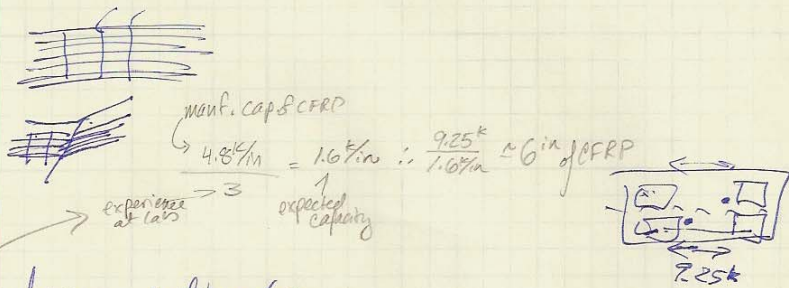 manf. cap of CFRP
4.8 k/in / 3 = 1.6 k/in ∴ 9.25 k / 1.6 k/in ≈ 6 in of CFRP
experience at lab
expected capacity
9.25 k